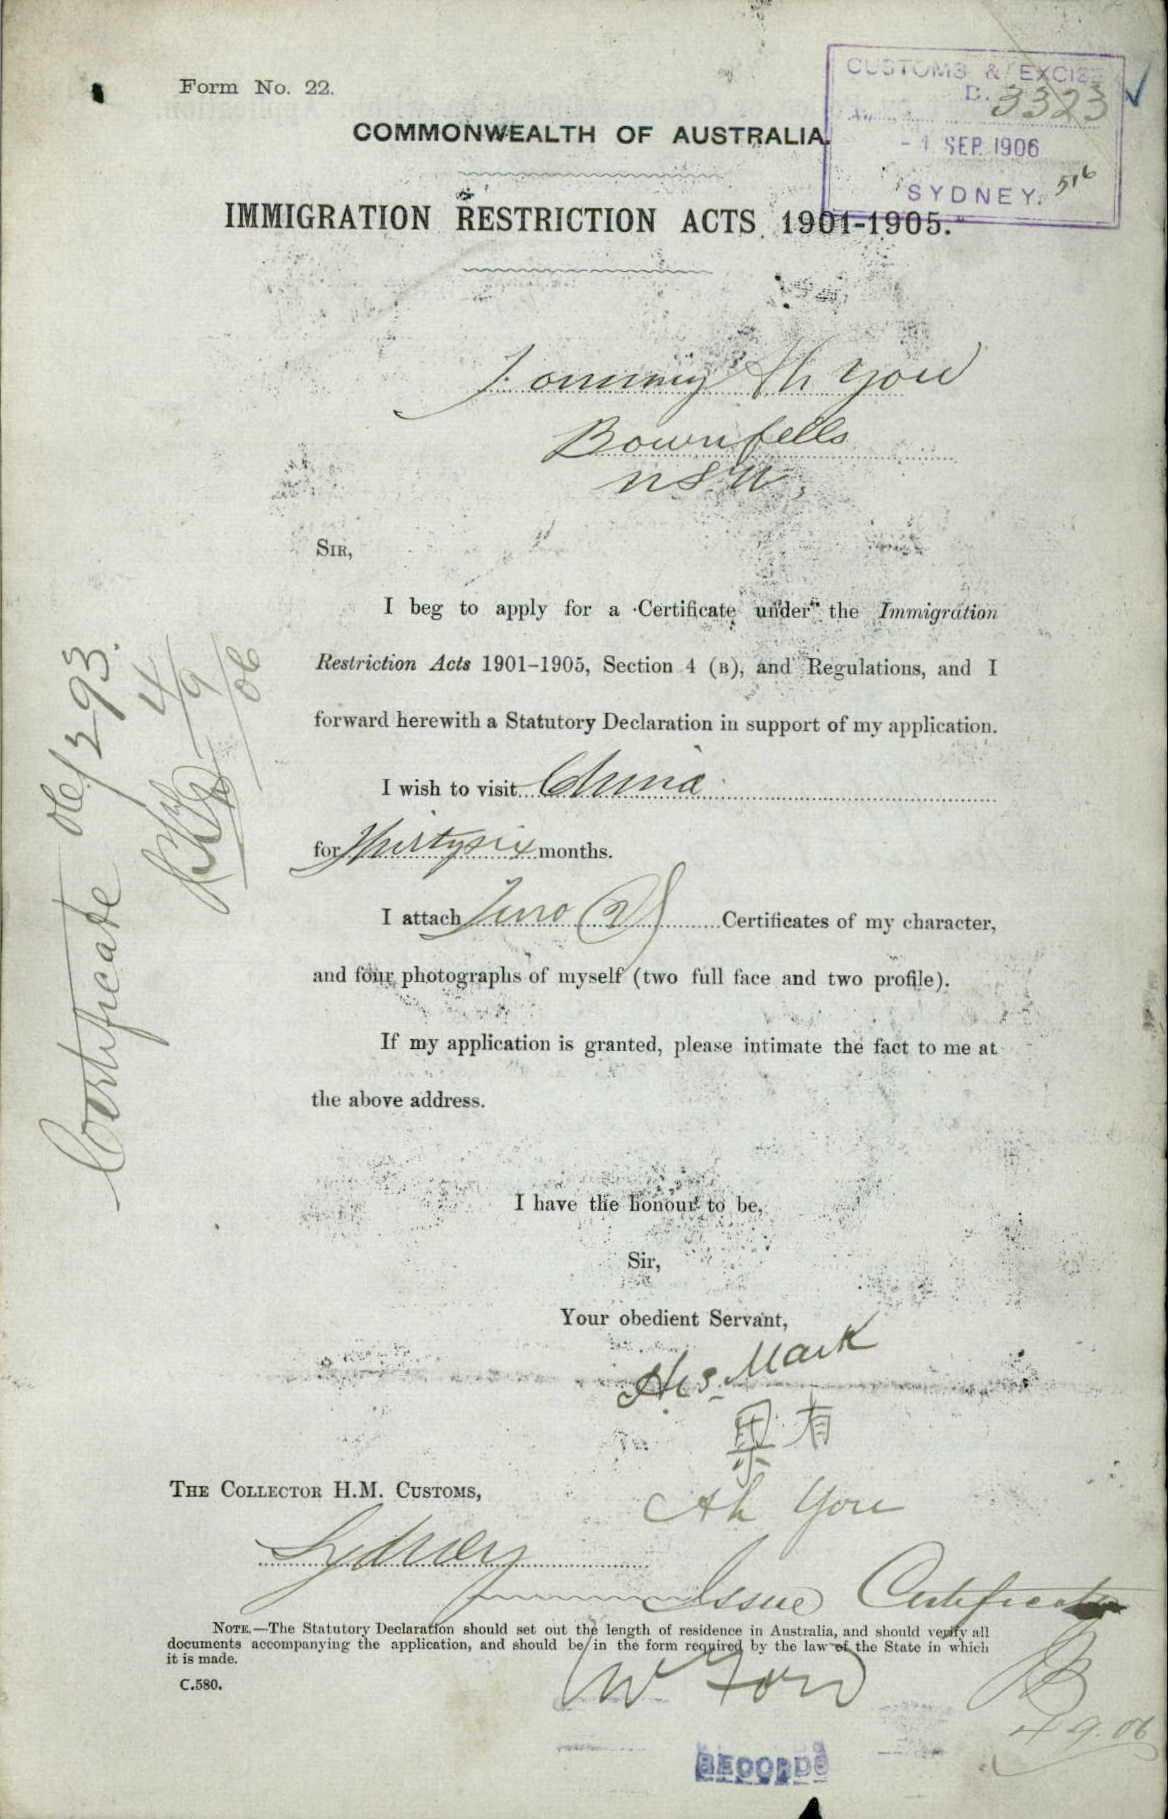 Form No. 22.
CUSTOMS & EXCISE
D. 3323
- 1 SEP. 1906
SYDNEY. 516
COMMONWEALTH OF AUSTRALIA.
IMMIGRATION RESTRICTION ACTS 1901-1905.
Tommy Ah You
Bowenfells
NSW.
SIR,
I beg to apply for a Certificate under the Immigration
Restriction Acts 1901-1905, Section 4 (B), and Regulations, and I
forward herewith a Statutory Declaration in support of my application.
I wish to visit China
for Thirtysix months.
I attach Two (2) Certificates of my character,
and four photographs of myself (two full face and two profile).
If my application is granted, please intimate the fact to me at
the above address.
Certificate 06/293.
4/9/06
I have the honour to be,
Sir,
Your obedient Servant,
His Mark
有
Ah You
THE COLLECTOR H.M. CUSTOMS,
Sydney
Issue Certificate
NOTE.—The Statutory Declaration should set out the length of residence in Australia, and should verify all
documents accompanying the application, and should be in the form required by the law of the State in which
it is made.
C.580.
4.9.06
RECORDS